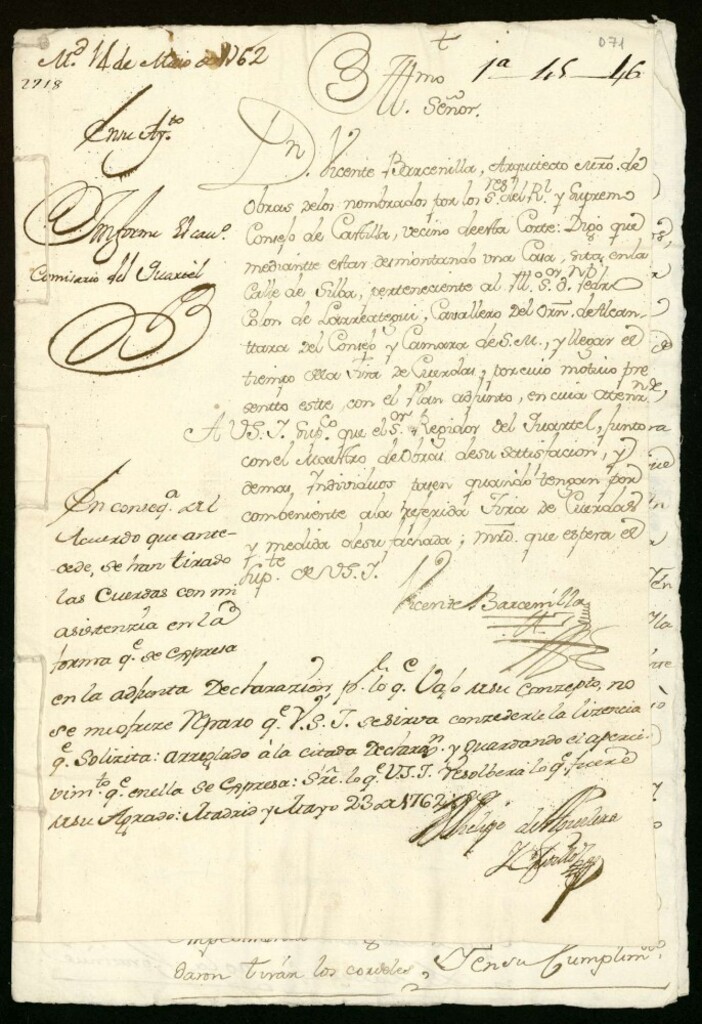 M.d 14 de Maio de 1762
2718
071
1ª - 45 - 46
Illmo
Señor.
En su Ay.to
Informe El cau.o
Comisario del Quartel
Dn. Vicente Barcenilla, Arquitecto Mro. de
Obras delos nombrados por los S.res del Rl. y Supremo
Consejo de Castilla, vecino de esta Corte: Dijo que
mediante estar desmontando una Casa, sita en la
Calle de Silba, perteneciente al Ill. S.or Dn. Pedro
Colon de Larreategui, Cavallero del Orn. de Alcan
ttara del Consejo y Camara de S.M., y llegar el
tiempo de la Tira de Cuerdas, por cuio motivo pre
sentto este, con el Plan adjunto, en cuia aten.n
A V.S.I. Sup.co que el S.or Rejidor del Quartel, junto
con el Maestro de Obras de su satisfacion, y
demas Individuos pasen quando tengan por
combeniente a la referida Tira de Cuerdas
y medida de su fachada; mrd. que espera el
Sup.te de V.S.I.
Vicente Barcenilla
En conseq.a del
Acuerdo que ante-
cede, se han tirado
las Cuerdas con mi
asistenzia en la
forma q.e se expresa
en la adjunta Declarazion, p.r lo q.e Vajo de su Conzepto, no
se me ofreze Reparo q.e V.S.I. se sirva conzederle la lizencia
q.e Solizita: arreglado à la citada Declaraz.n y guardando el aperci-
vim.to q.e en ella se expresa: Sre. lo q.e V.S.I. resolbera lo q.e fuere
de su Agrado: Madrid y Mayo 23 de 1762
Phelipe de Aguilera
daron tirán los cordeles,
En su Cumplim.to